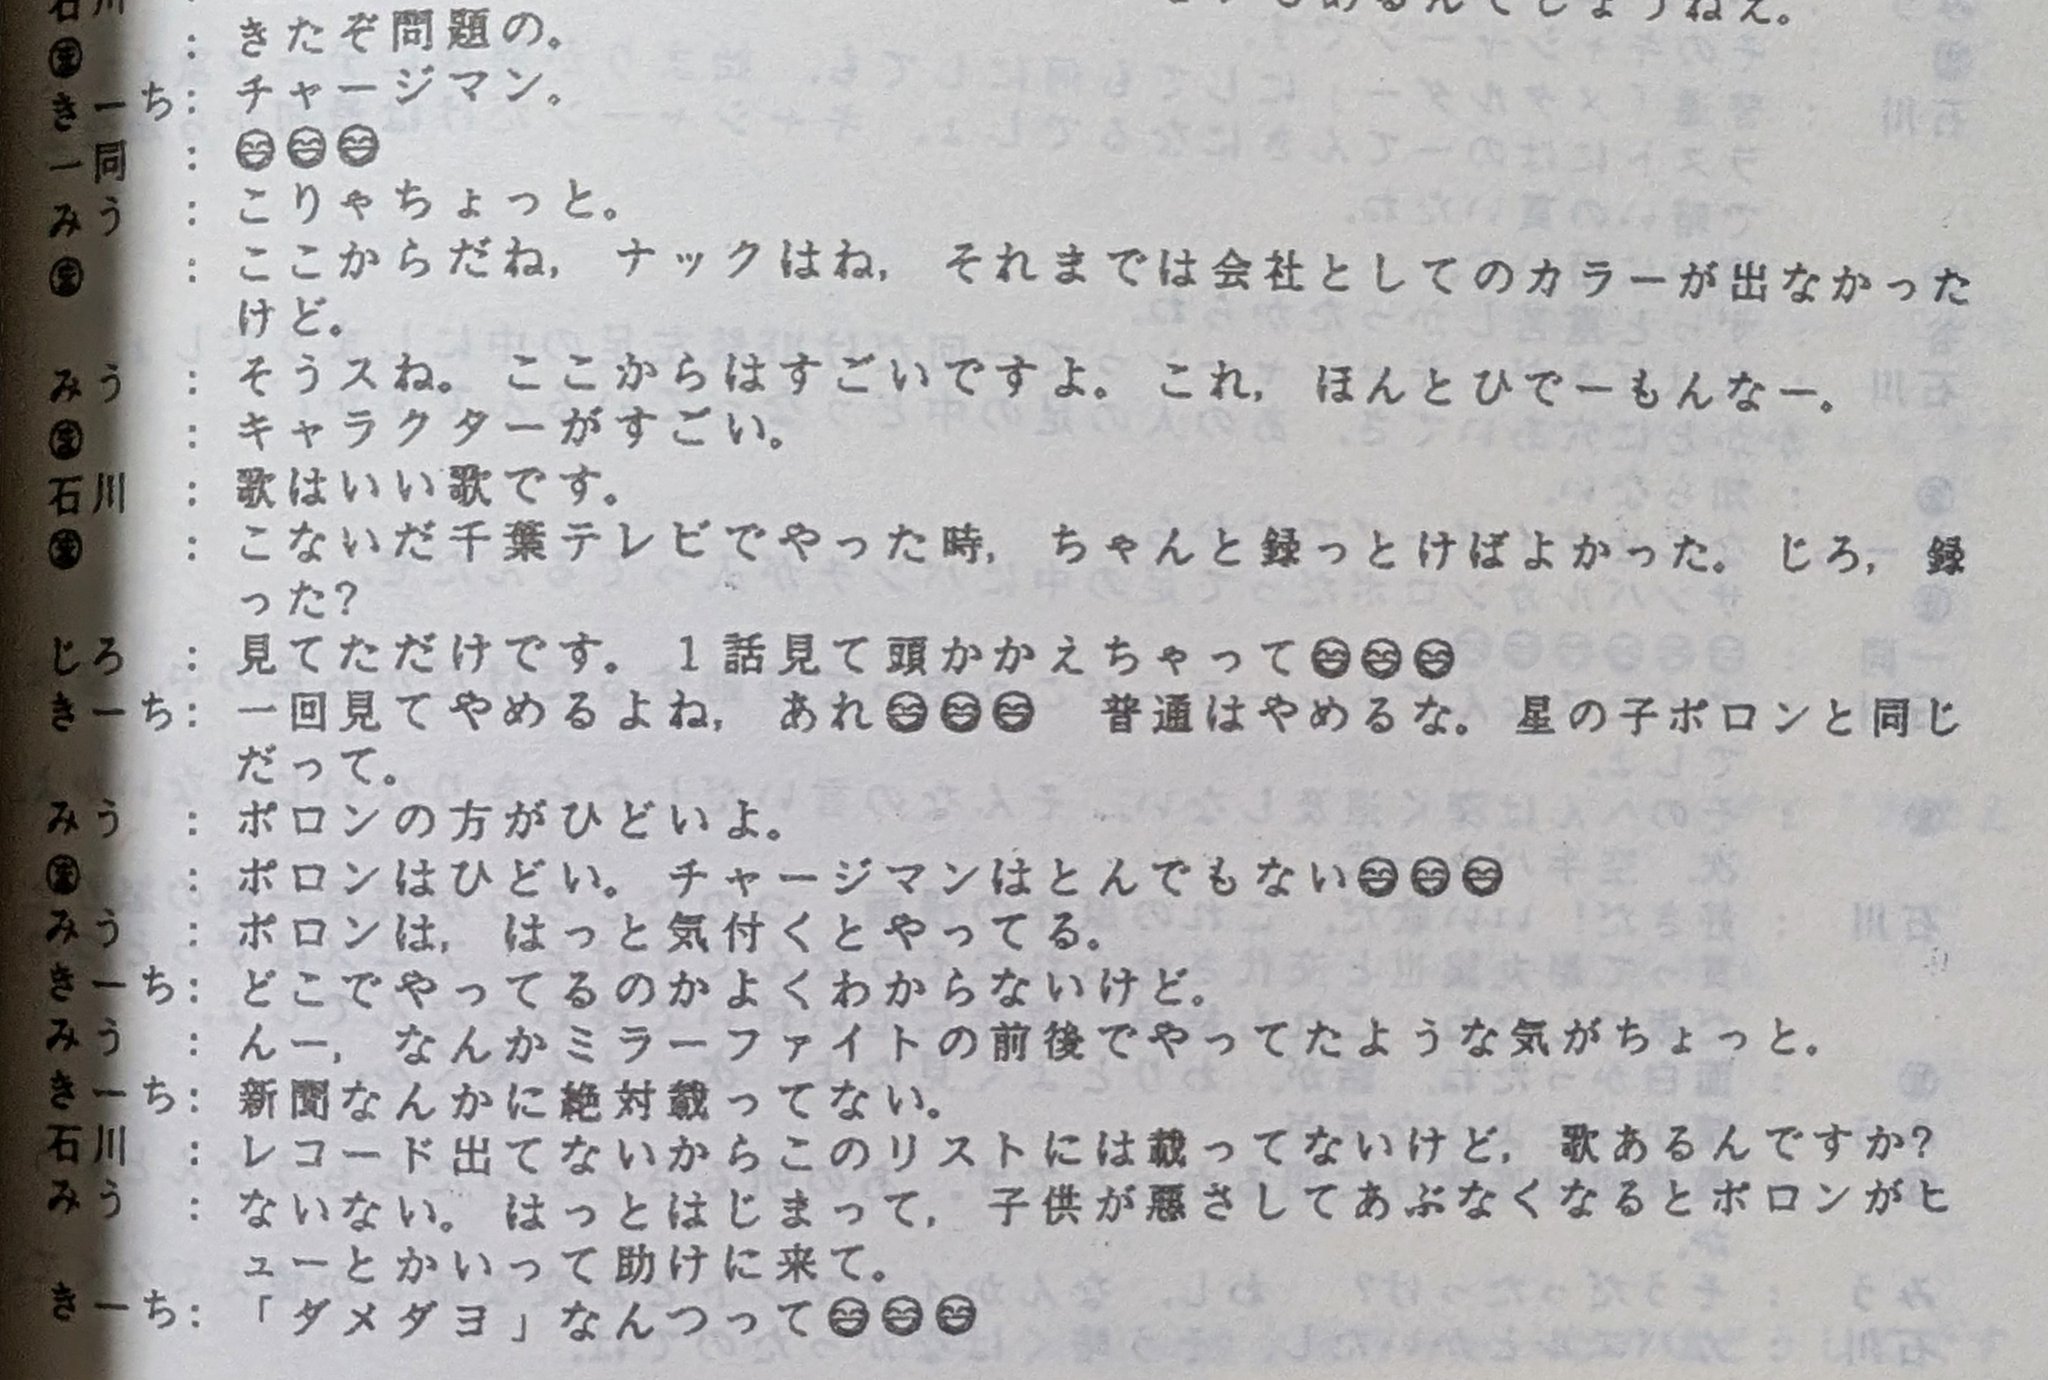 石川 :
: きたぞ問題の。
きーち: チャージマン。
一同 : 😄😄😄
みう : こりゃちょっと。
: ここからだね, ナックはね, それまでは会社としてのカラーが出なかった
けど。
みう : そうスね。ここからはすごいですよ。これ, ほんとひでーもんなー。
: キャラクターがすごい。
石川 : 歌はいい歌です。
: こないだ千葉テレビでやった時, ちゃんと録っとけばよかった。じろ, 録
った?
じろ : 見てただけです。1話見て頭かかえちゃって😄😄😄
きーち: 一回見てやめるよね, あれ😄😄😄 普通はやめるな。星の子ポロンと同じ
だって。
みう : ポロンの方がひどいよ。
: ポロンはひどい。チャージマンはとんでもない😄😄😄
みう : ポロンは, はっと気付くとやってる。
きーち: どこでやってるのかよくわからないけど。
みう : んー, なんかミラーファイトの前後でやってたような気がちょっと。
きーち: 新聞なんかに絶対載ってない。
石川 : レコード出てないからこのリストには載ってないけど, 歌あるんですか?
みう : ないない。はっとはじまって, 子供が悪さしてあぶなくなるとポロンがヒ
ューとかいって助けに来て。
きーち: 「ダメダヨ」なんつって😄😄😄